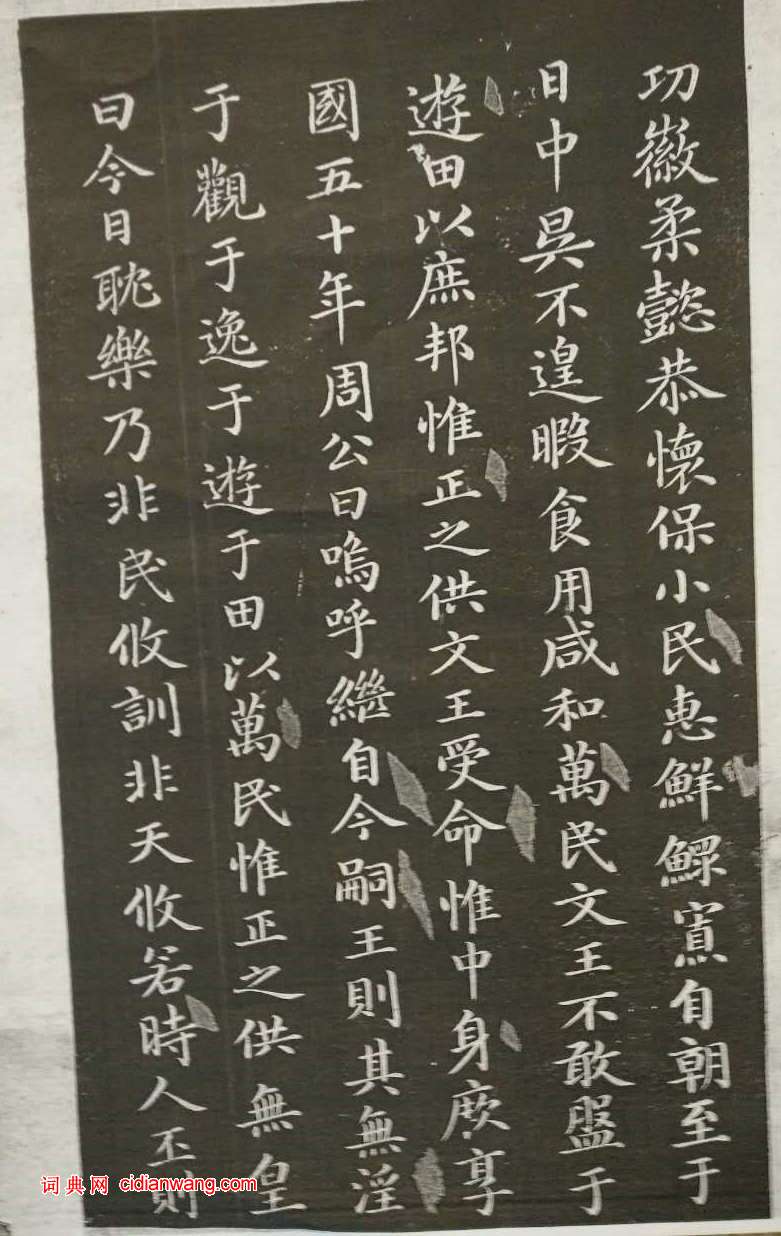 功徽柔懿恭懷保小民惠鮮鰥寡自朝至于
日中昃不遑暇食用咸和萬民文王不敢盤于
遊田以庶邦惟正之供文王受命惟中身厥享
國五十年周公曰嗚呼繼自今嗣王則其無淫
于觀于逸于遊于田以萬民惟正之供無皇
曰今日耽樂乃非民攸訓非天攸若時人丕則
词典网 cidianwang.com